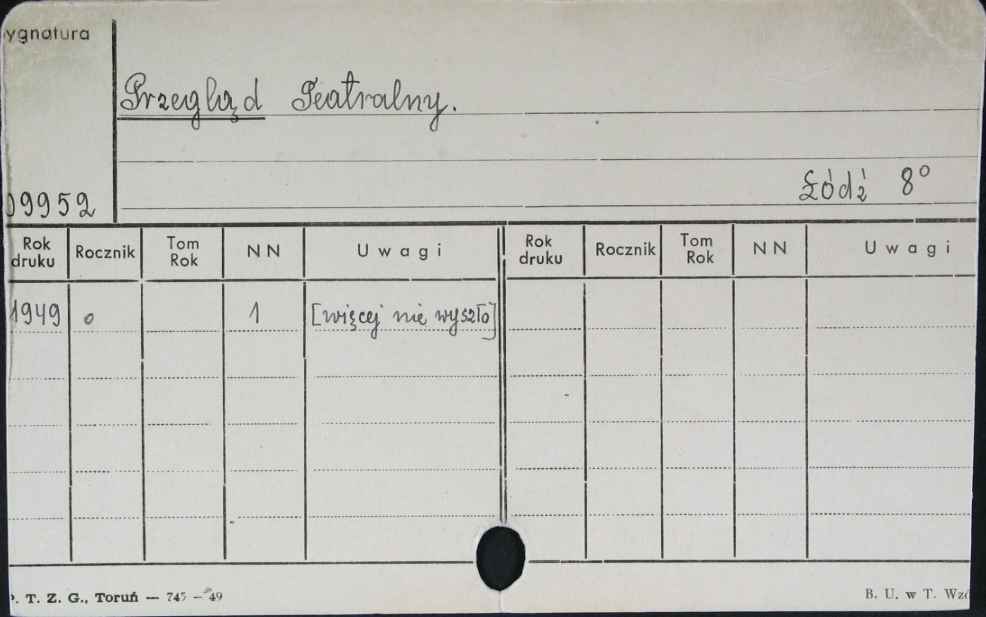 ygnatura
Przegląd Teatralny.
09952
Łódź 8°
Rok druku Rocznik Tom Rok NN Uwagi Rok druku Rocznik Tom Rok NN Uwagi
1949 o 1 [więcej nie wyszło]
. T. Z. G., Toruń — 745 — 49
B. U. w T. Wzó